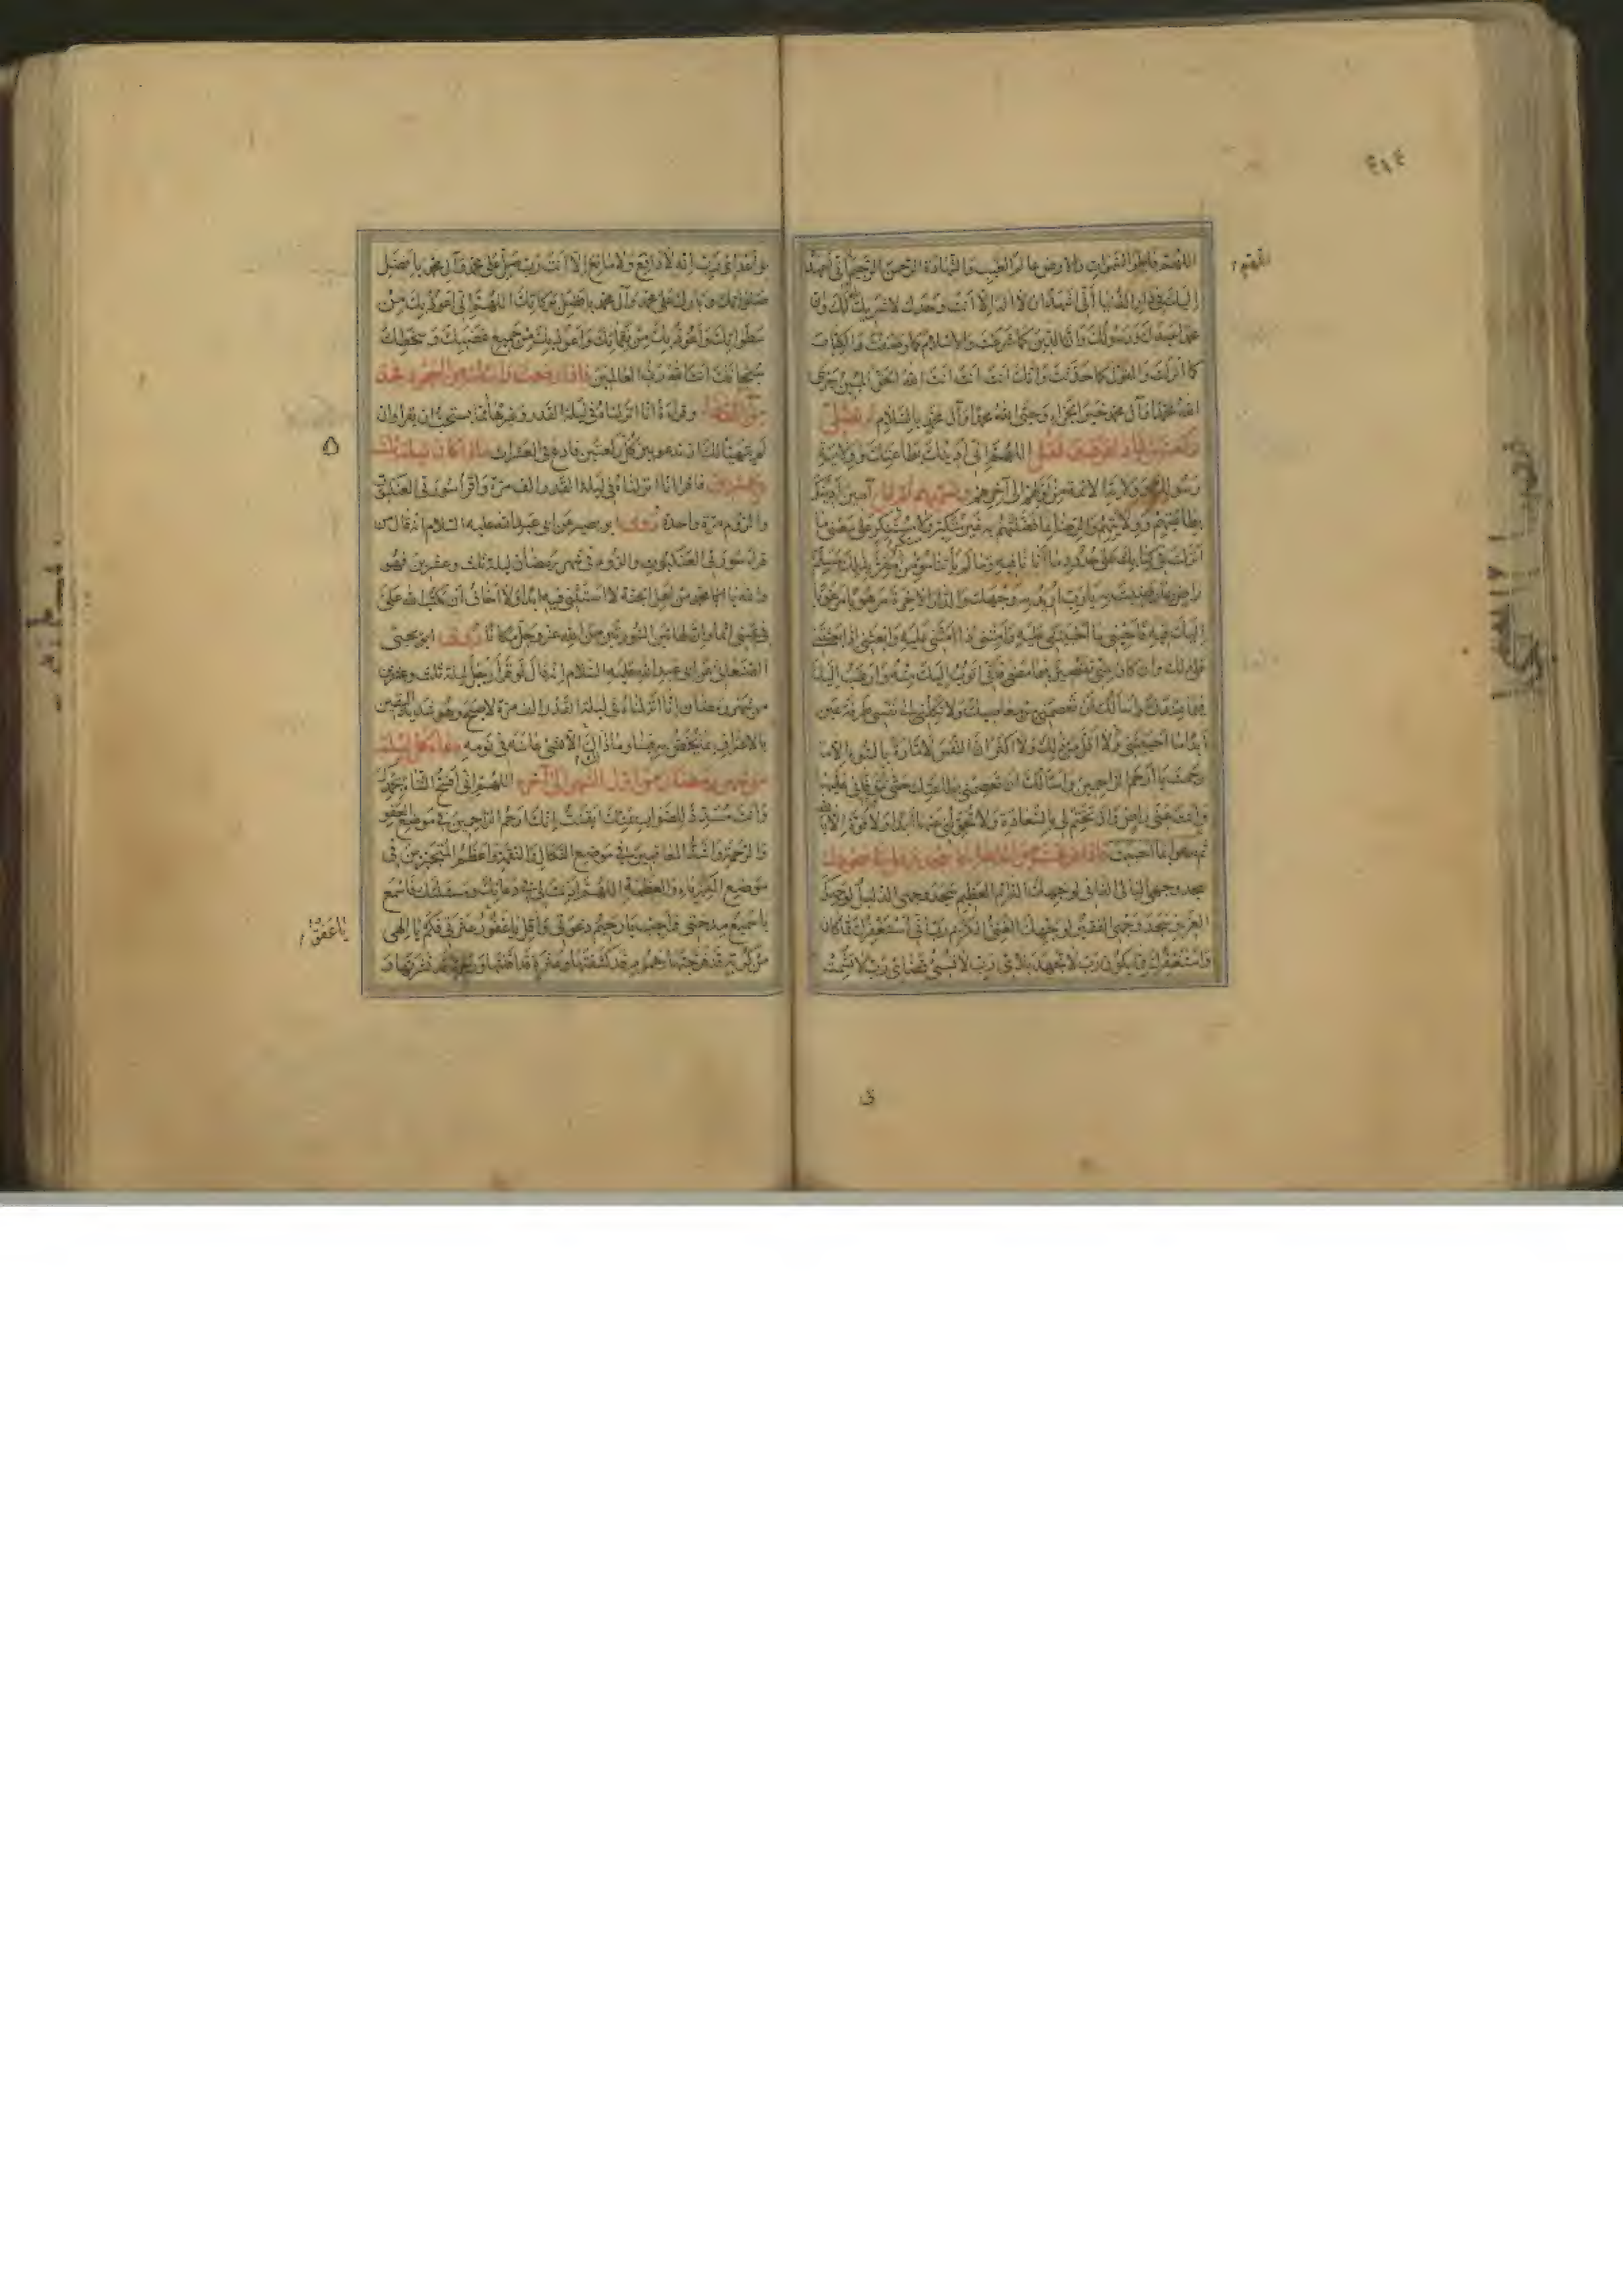 اللهم فاطر السموات والارض عالم الغيب والشهادة الرحمن الرحيم اني اعهد
اليك في دار الدنيا اني اشهد ان لا اله الا انت وحدك لا شريك لك وان
محمدا عبدك ورسولك وان الدين كما شرعت والاسلام كما وصفت والكتاب
كما انزلت والقول كما حدثت وانك انت انت انت الله الحق المبين جزى
الله محمدا وآل محمد خير الجزاء وحيى الله محمدا وآل محمد بالسلام ثم تصلي
ركعتين فاذا فرغت فقل اللهم اني ادينك بطاعتك وولايته
رسولك وولاية الائمة من اولهم الى آخرهم وتسميهم ثم قل آمين ادينك
بطاعتهم وولايتهم والرضا بما فضلتهم به غير متكبر ولا مستكبر على معنى ما
انزلت في كتابك على حدود ما اتانا فيه وما لم ياتنا مؤمن مقر بذلك مسلم
راض بما رضيت به يا رب اريد به وجهك والدار الآخرة مرهوبا ومرغوبا
اليك فيه فاحيني ما احييتني عليه وامتني اذا امتني عليه وابعثني اذا بعثتني
على ذلك وان كان مني تقصير فيما مضى فاني اتوب اليك منه وارغب اليك
فيما عندك واسالك ان تعصمني من معاصيك ولا تكلني الى نفسي طرفة عين
ابدا ما احييتني ولا اقل من ذلك ولا اكثر ان النفس لامارة بالسوء الا ما
رحمت يا ارحم الراحمين واسالك ان تعصمني بطاعتك حتى تتوفاني عليها
وانت عني راض وان تختم لي بالسعادة ولا تحولني عنها ابدا ولا قوة الا بالله
ثم تدعو بما احببت فاذا فرغت من الدعاء فاسجد وقل في سجودك
سجد وجهي البالي الفاني لوجهك الدائم العظيم سجد وجهي الذليل لوجهك
العزيز سجد وجهي الفقير لوجهك الغني الكريم رب اني استغفرك مما كان
واستغفرك مما يكون رب لا تجهد بلائي رب لا تسئ قضائي رب لا تشمت
بي اعدائي رب انه لا دافع ولا مانع الا انت رب صل على محمد وآل محمد بافضل
صلواتك وبارك على محمد وآل محمد بافضل بركاتك اللهم اني اعوذ بك من
سطواتك واعوذ بك من نقماتك واعوذ بك من جميع غضبك وسخطك
سبحانك انت الله رب العالمين فاذا رفعت راسك من السجود فخذ
في الدعاء وقراءة انا انزلناه في ليلة القدر وغيرها مما يستحب ان يقرأ وان
لم يتهيأ لك ان تدعو بين كل ركعتين فادع في العشرات فاذا كان ليلة ثلث
وعشرين فاقرا انا انزلناه في ليلة القدر الف مرة واقرأ سورتي العنكبوت
والروم مرة واحدة روى ابو بصير عن ابي عبد الله عليه السلام انه قال من
قرا سورتي العنكبوت والروم في شهر رمضان ليلة ثلث وعشرين فهو
والله يا ابا محمد من اهل الجنة لا استثني فيه ابدا ولا اخاف ان يكتب الله علي
في يميني اثما وان لهاتين السورتين من الله عز وجل مكانا روى ابو يحيى
الصنعاني عن ابي عبد الله عليه السلام انه قال لو قرا رجل ليلة ثلث وعشرين
من شهر رمضان انا انزلناه في ليلة القدر الف مرة لاصبح وهو شديد اليقين
بالاعتراف بما يختص به فينا وما ذاك الا لشئ عاينه في نومه دعاء كل ليلة
من شهر رمضان من اول الشهر الى آخره اللهم اني افتتح الثناء بحمدك
وانت مسدد للصواب بمنك ايقنت انك ارحم الراحمين في موضع العفو
والرحمة واشد المعاقبين في موضع النكال والنقمة واعظم المتجبرين في
موضع الكبرياء والعظمة اللهم اذنت لي في دعائك ومسئلتك فاسمع
يا سميع مدحتي واجب يا رحيم دعوتي واقل يا غفور عثرتي فكم يا الهي
من كربة قد فرجتها وهموم قد كشفتها وعثرة قد اقلتها ورحمة قد نشرتها و
يا غفور